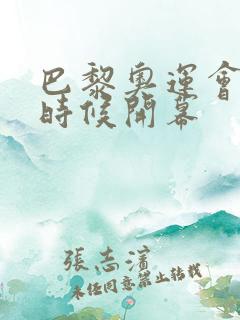 巴黎奧運會
時候開幕
張志濱
未任同意禁止转载